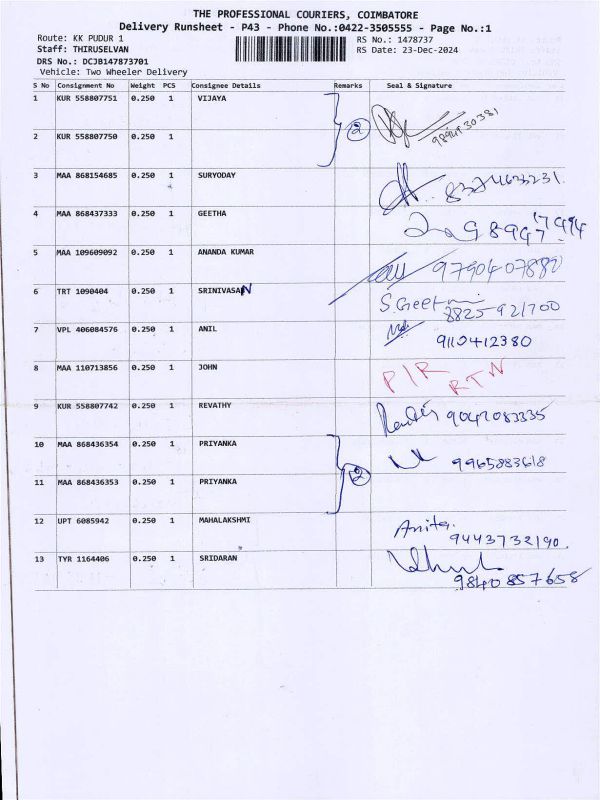 THE PROFESSIONAL COURIERS, COIMBATORE
Delivery Runsheet - P43 - Phone No.:0422-3505555 - Page No.:1
Route: KK PUDUR 1 RS No.: 1478737
Staff: THIRUSELVAN RS Date: 23-Dec-2024
DRS No.: DCJB147873701
Vehicle: Two Wheeler Delivery
S No Consignment No Weight PCS Consignee Details Remarks Seal & Signature
1 KUR 558807751 0.250 1 VIJAYA
2 9894130381
2 KUR 558807750 0.250 1
3 MAA 868154685 0.250 1 SURYODAY
4 MAA 868437333 0.250 1 GEETHA
5 MAA 109609092 0.250 1 ANANDA KUMAR 9790407880
6 TRT 1090404 0.250 1 SRINIVASAN S.Geet 8825921700
7 VPL 406084576 0.250 1 ANIL 9110412380
8 MAA 110713856 0.250 1 JOHN P/R RTN
9 KUR 558807742 0.250 1 REVATHY 9042083335
10 MAA 868436354 0.250 1 PRIYANKA 9965883618
2
11 MAA 868436353 0.250 1 PRIYANKA
12 UPT 6085942 0.250 1 MAHALAKSHMI Anita. 9443732190
13 TYR 1164406 0.250 1 SRIDARAN 9840857658